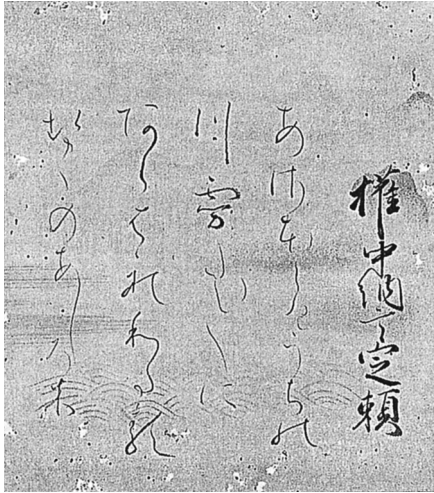 權中納言定頼
あさほらけうちの
川霧たえ〳〵に
あらはれわたる
せゝのあしろ木